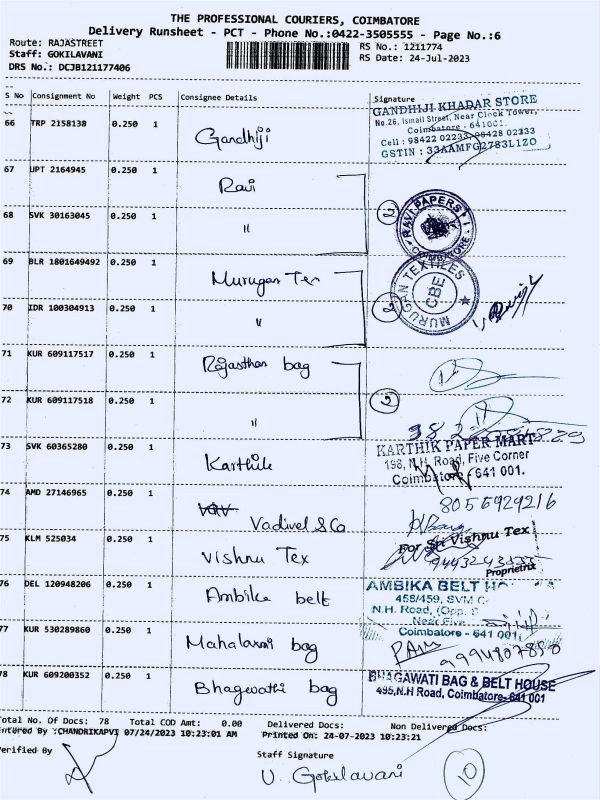 THE PROFESSIONAL COURIERS, COIMBATORE
Delivery Runsheet - PCT - Phone No.:0422-3505555 - Page No.:6
Route: RAJASTREET
Staff: GOKILAVANI
DRS No.: DCJB121177406
RS No.: 1211774
RS Date: 24-Jul-2023
S No Consignment No Weight PCS Consignee Details Signature
66 TRP 2158138 0.250 1 Gandhiji
GANDHIJI KHADAR STORE
No.26, Ismail Street, Near Clock Tower,
Coimbatore - 641001.
Cell : 98422 02233, 98428 02233
GSTIN : 33AAMFG2783L1Z0
67 UPT 2164945 0.250 1 Ravi
68 SVK 30163045 0.250 1 "
2
RAVI PAPERS
COIMBATORE
69 BLR 1801649492 0.250 1 Murugan Tex
70 IDR 100304913 0.250 1 "
2
MURUGAN TEXTILES
CBE
71 KUR 609117517 0.250 1 Rajasthan bag
72 KUR 609117518 0.250 1 "
2
73 SVK 60365280 0.250 1 Karthik
KARTHIK PAPER MART
198, N.H. Road, Five Corner
Coimbatore - 641 001.
74 AMD 27146965 0.250 1 Vadivel & Co
8056929216
75 KLM 525034 0.250 1 Vishnu Tex
For Sri Vishnu Tex
Proprietrix
76 DEL 120948206 0.250 1 Ambika belt
AMBIKA BELT
458/459, SVM
N.H. Road, (Opp.
Near Five
Coimbatore - 641 001.
77 KUR 530289860 0.250 1 Mahalaxmi bag
78 KUR 609200352 0.250 1 Bhagawathi bag
BHAGAWATI BAG & BELT HOUSE
495, N.H Road, Coimbatore- 641 001
Total No. Of Docs: 78 Total COD Amt: 0.00 Delivered Docs: Non Delivered Docs:
Entered By :CHANDRIKAPVI 07/24/2023 10:23:01 AM Printed On: 24-07-2023 10:23:21
Verified By
Staff Signature
V. Gokilavani
10